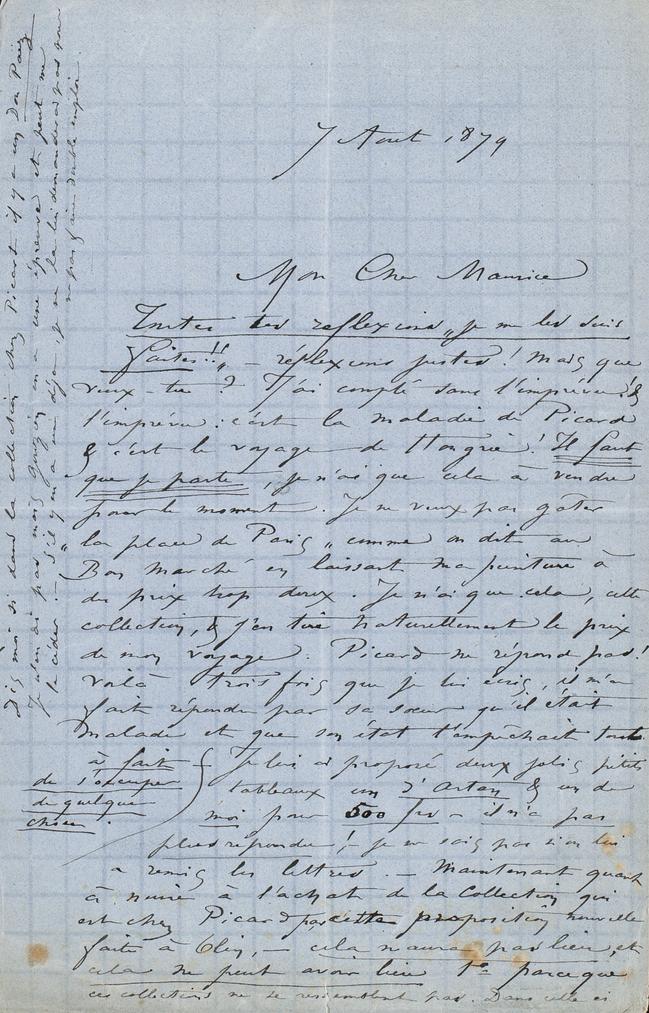 7 Aout 1879
Mon Cher Maurice
Toutes tes reflexions „je me les suis
faites!!„ – réflexions justes! Mais que
veux-tu? J'ai compté sans l'imprévu! &
l'imprévu: c'est la maladie de Picard
& c'est le voyage de Hongrie! Il faut
que je parte, je n'ai que cela à vendre
pour le moment. Je ne veux pas gater
la place de Paris „ comme on dit au
Bon Marché en laissant ma peinture à
des prix trop doux. Je n'ai que cela, cette
collection, & j'en tire naturellement le prix
de mon voyage. Picard ne répond pas!
voilà trois fois que je lui écris, il m'a
fait répondre par sa soeur qu'il était
malade et que son état l'empêchait tout
à fait
de s'occuper
de quelque
chose.
Je lui ai proposé deux jolis petits
tableaux un d'Artan & un de
moi pour 500 frs – il n'a pas
plus répondu! – je ne sais pas si on lui
a remis les lettres. – Maintenant quant
à nuire à l'achat de la Collection qui
est chez Picard par cette proposition nouvelle
faite à Olin, – cela n'aura pas lieu, et
cela ne peut avoir lieu 1º parceque
ces collections ne se ressemblent pas. Dans celle ci
Dis moi si dans la collection chez Picart il y a un Don Paëz
Je n'en ai pas mais Gouzien en a une épreuve et peut me
la céder – s'il y en a un déja, je ne la lui demanderai pas pour
ne pas faire double emploi.